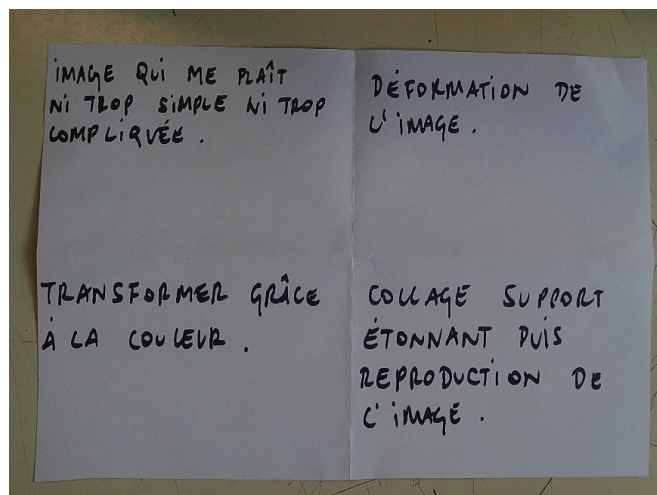 IMAGE QUI ME PLAÎT
NI TROP SIMPLE NI TROP
COMPLIQUÉE.
DÉFORMATION DE
L'IMAGE.
TRANSFORMER GRÂCE
À LA COULEUR.
COLLAGE SUPPORT
ÉTONNANT PUIS
REPRODUCTION DE
L'IMAGE.